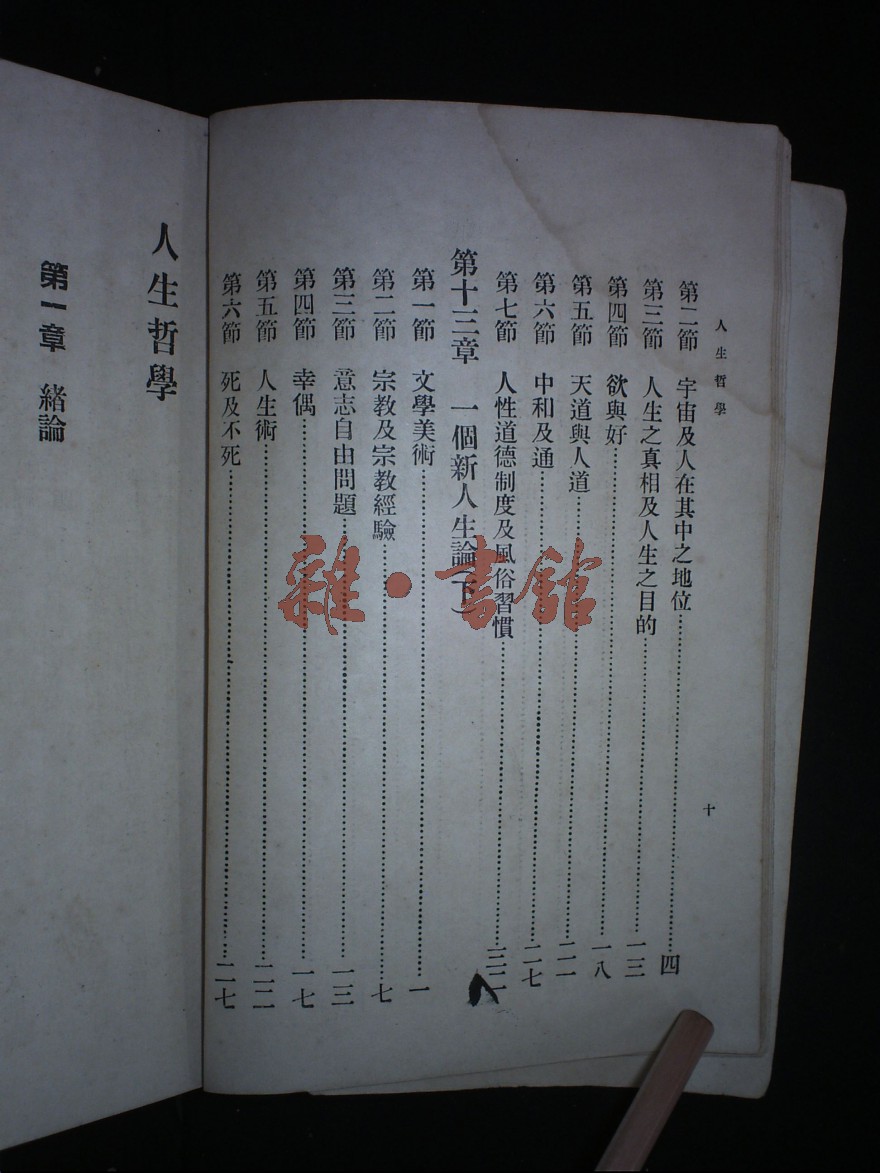 人生哲學
十
第二節 宇宙及人在其中之地位……四
第三節 人生之真相及人生之目的……一三
第四節 欲與好……一八
第五節 天道與人道……二一
第六節 中和及通……二七
第七節 人性道德制度及風俗習慣……三二
第十三章 一個新人生論(下)
第一節 文學美術……一
第二節 宗教及宗教經驗……七
第三節 意志自由問題……一三
第四節 幸偶……一七
第五節 人生術……二二
第六節 死及不死……二七
人生哲學
第一章 緒論
雜·書館